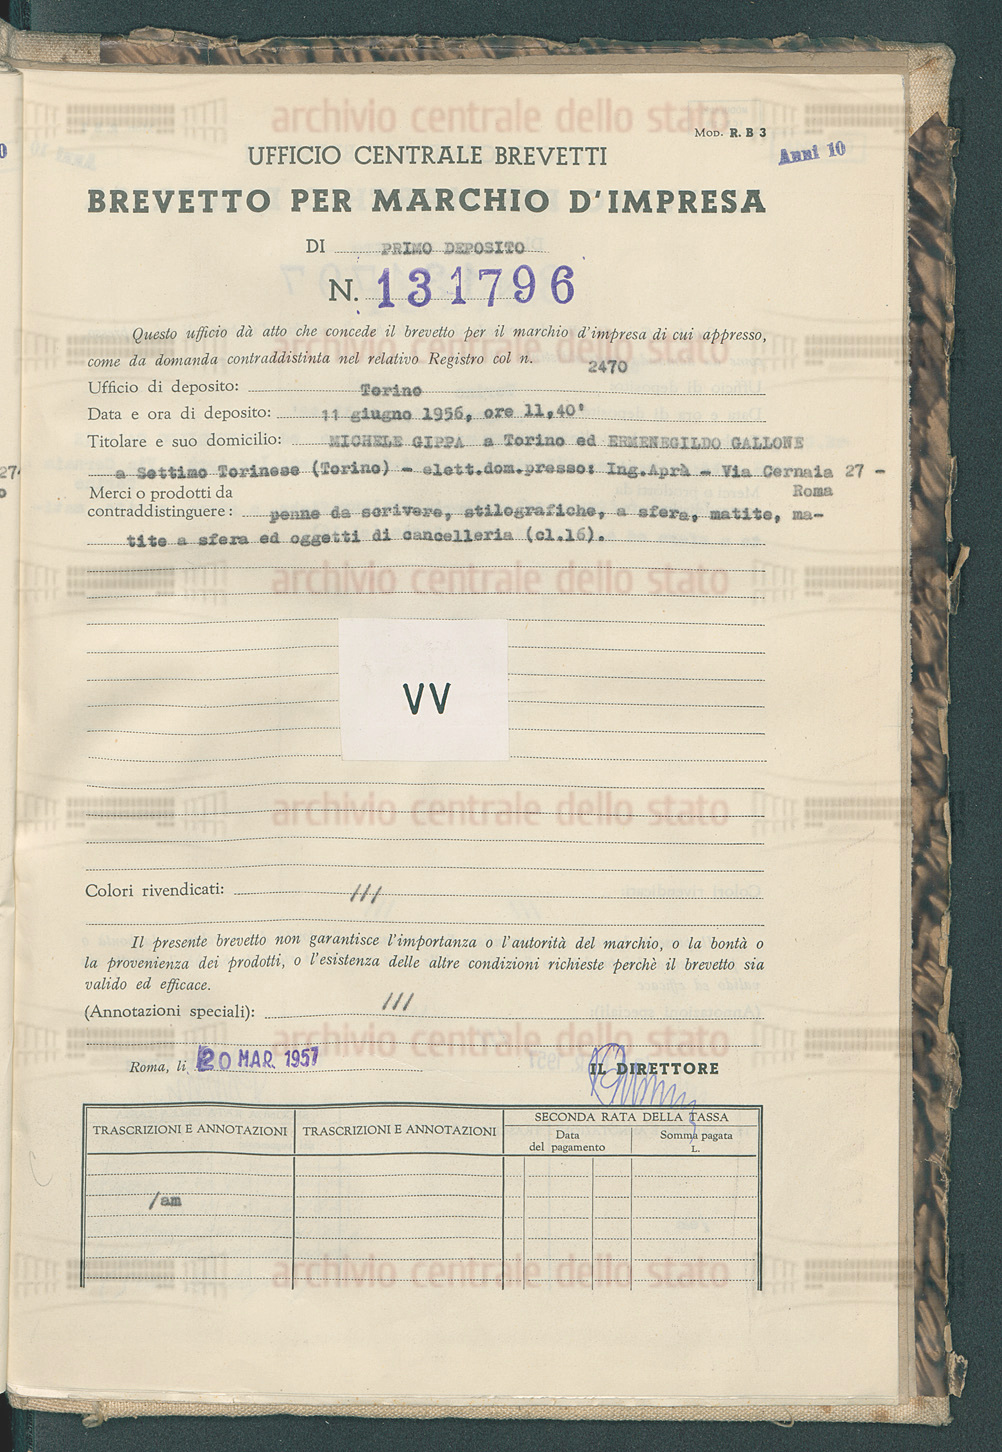 MOD. R. B 3
Anni 10
UFFICIO CENTRALE BREVETTI
BREVETTO PER MARCHIO D'IMPRESA
DI PRIMO DEPOSITO
N. 131796
Questo ufficio dà atto che concede il brevetto per il marchio d'impresa di cui appresso,
come da domanda contraddistinta nel relativo Registro col n. 2470
Ufficio di deposito: Torino
Data e ora di deposito: 11 giugno 1956, ore 11,40'
Titolare e suo domicilio: MICHELE GIPPA a Torino ed ERMENEGILDO GALLONE
a Settimo Torinese (Torino) - elett.dom.presso: Ing.Aprà - Via Cernaia 27 -
Roma
Merci o prodotti da
contraddistinguere: penne da scrivere, stilografiche, a sfera, matite, ma-
tite a sfera ed oggetti di cancelleria (cl.16).
VV
Colori rivendicati: ///
Il presente brevetto non garantisce l'importanza o l'autorità del marchio, o la bontà o
la provenienza dei prodotti, o l'esistenza delle altre condizioni richieste perchè il brevetto sia
valido ed efficace.
(Annotazioni speciali): ///
Roma, li 20 MAR. 1957
IL DIRETTORE
TRASCRIZIONI E ANNOTAZIONI
TRASCRIZIONI E ANNOTAZIONI
SECONDA RATA DELLA TASSA
Data
del pagamento
Somma pagata
L.
/am
archivio centrale dello stato
archivio centrale dello stato
archivio centrale dello stato
archivio centrale dello stato
archivio centrale dello stato
archivio centrale dello stato